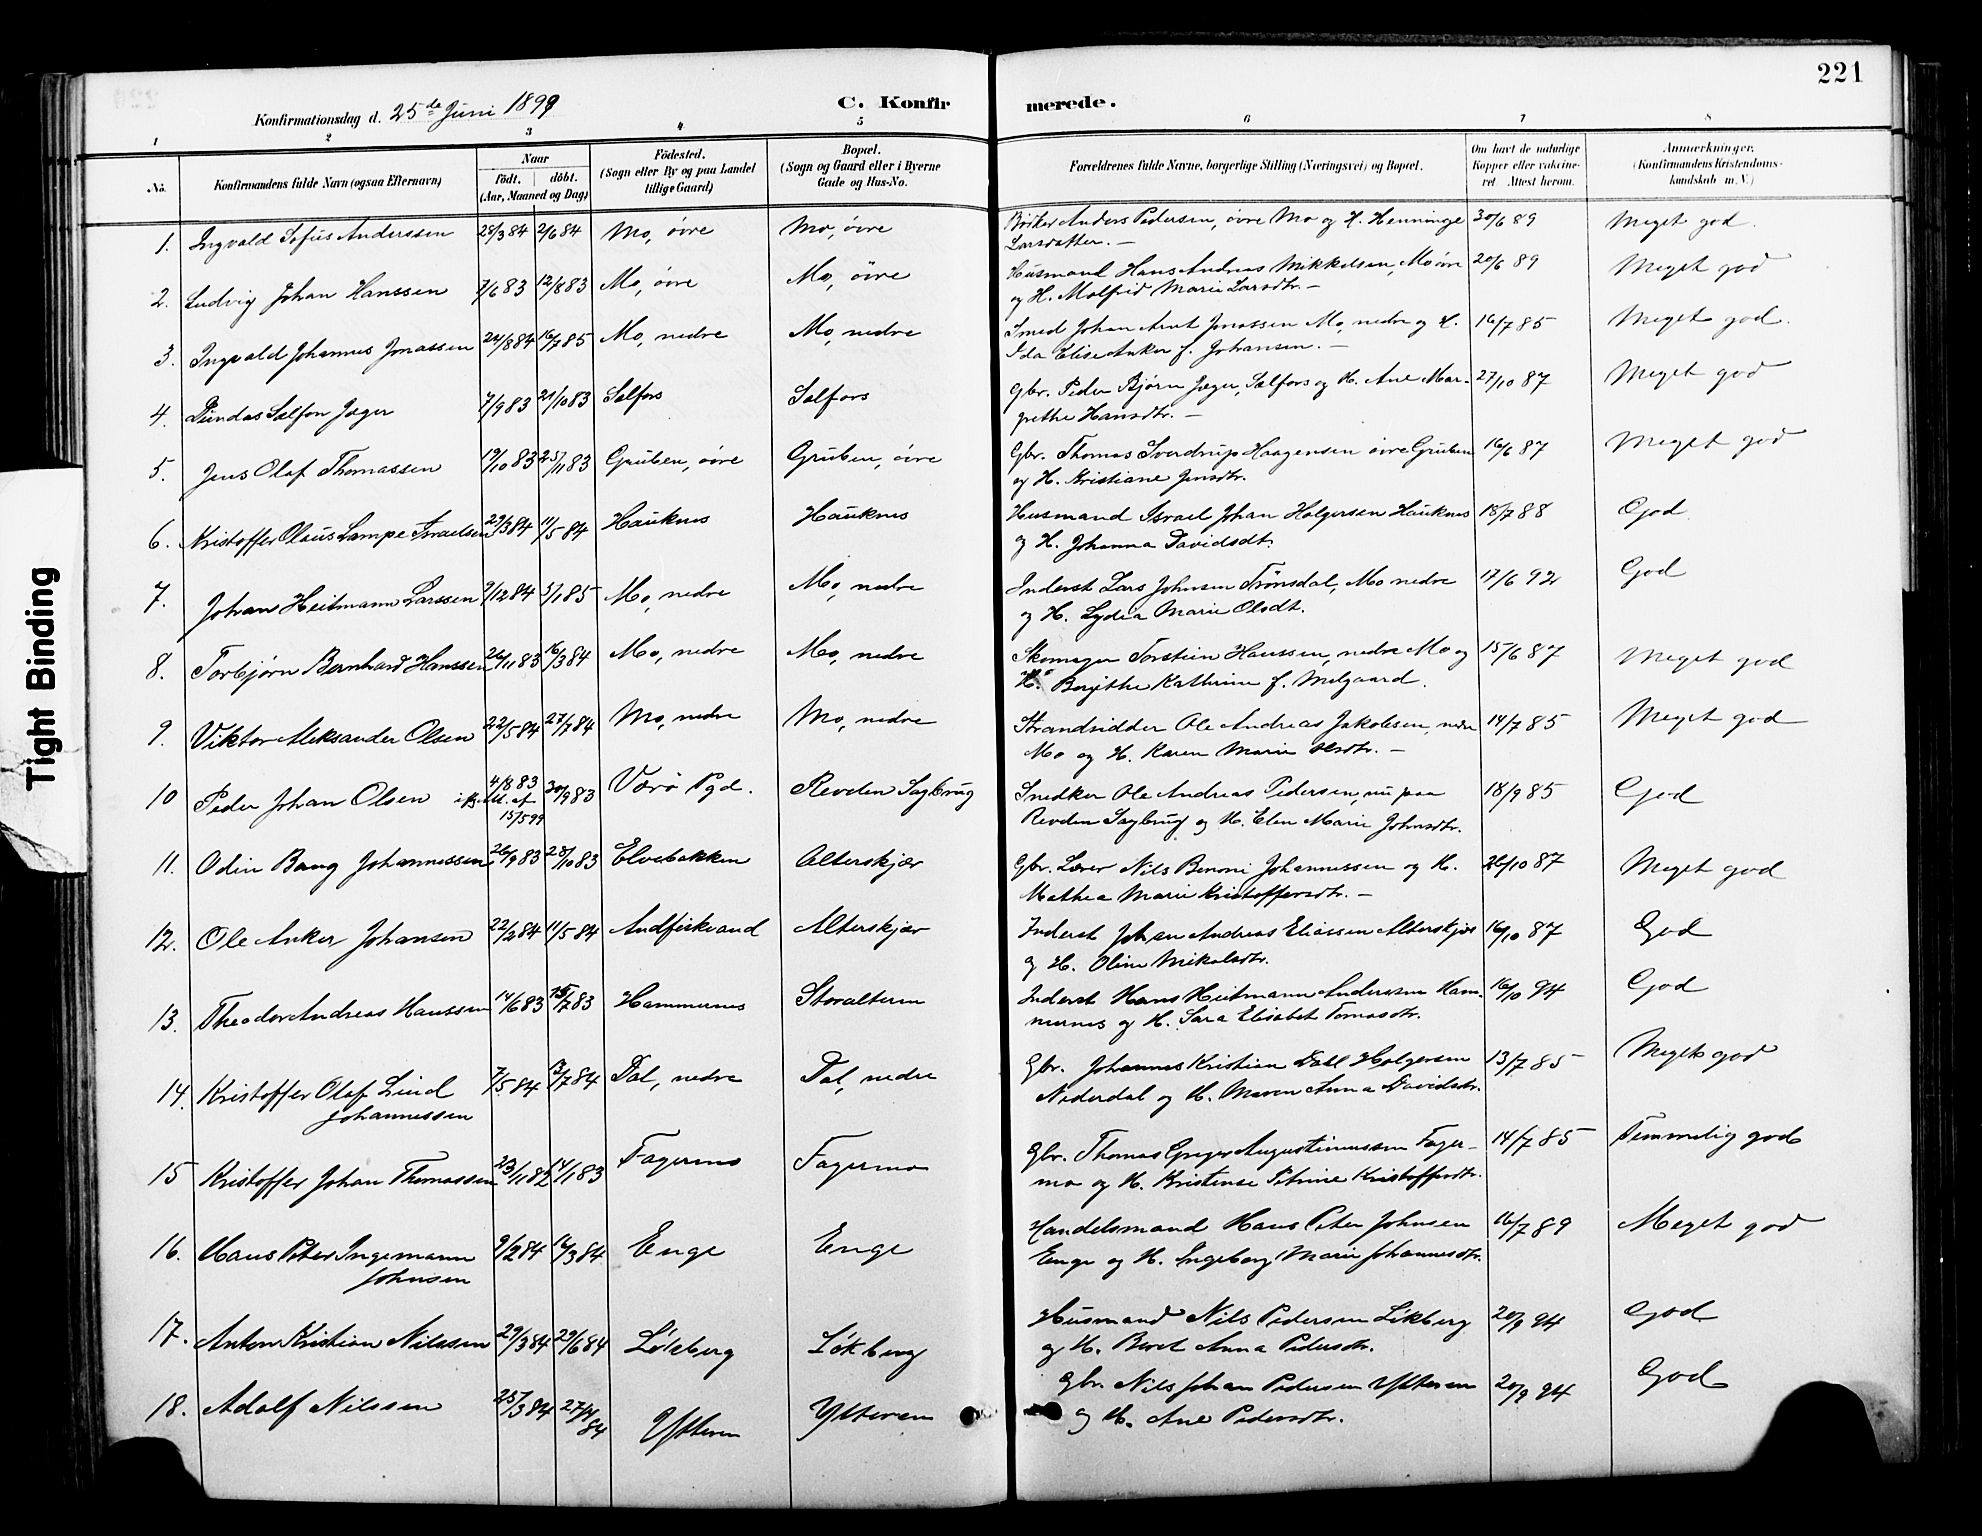 221
Konfirmationsdag d. 25de Juni 1899
C. Konfirmerede.
1 2 3 4 5 6 7 8
No.
Konfirmandens fulde Navn (ogsaa Efternavn)
Naar
födt. döbt.
(Aar, Maaned og Dag)
Födested.
(Sogn eller By og paa Landet
tillige Gaard)
Bopæl.
(Sogn og Gaard eller i Byerne
Gade og Hus-No.
Forældrenes fulde Navne, borgerlige Stilling (Næringsvei) og Bopæl.
Om havt de naturlige
Kopper eller vakcine-
ret Attest herom.
Anmærkninger.
(Konfirmandens Kristendoms-
kundskab m. V.)
1. Ingvald Sofus Anderssen 28/3 84 2/6 84 Mo, övre Mo, övre Anders Pedersen, övre Mo og H. Henninge 30/6 89 Meget god.
Larsdatter. —
2. Ludvig Johan Hanssen 7/6 83 12/8 83 Mo, övre Mo, övre Husmand Hans Andreas Mikkelsen, Mo övre 20/6 89 Meget god
og H. Malfrid Marie Larsdtr. —
3. Ingvald Johannes Jonassen 24/8 84 16/7 85 Mo, nedre Mo, nedre Smed Johan Arnt Jonassen Mo, nedre og H. 16/7 85 Meget god.
Ida Elise Anker f. Johansen. —
4. Dundas Salfon Jæger 7/9 83 21/10 83 Salfors Salfors Gbr. Peder Bjørn Jæger, Salfors og H. Ane Mar- 27/10 87 Meget god
grethe Hansdtr. —
5. Jens Olaf Thomassen 19/10 83 25/11 83 Gruben, övre Gruben, övre Gbr. Thomas Sverdrup Haagensen övre Gruben 16/6 87 Meget god
og H. Kristiane Jensdtr.
6. Kristoffer Olaus Lampe Israelsen 29/3 84 11/5 84 Hauknes Hauknes Husmand Israel Johan Holgersen Hauknes 18/7 88 God
og H. Johanna Davidsdt.
7. Johan Heitmann Larssen 9/12 84 5/1 85 Mo, nedre Mo, nedre Inderst Lars Johnsen Trönsdal, Mo nedre 17/6 92 God
og H. Lydia Marie Olsdt.
8. Torbjørn Bernhard Hanssen 26/11 83 16/3 84 Mo, nedre Mo, nedre Skomager Torstein Hanssen, nedre Mo og 15/6 87 Meget god
H. Bergithe Kathrine f. Melgaard.
9. Viktor Aleksander Olsen 22/5 84 27/7 84 Mo, nedre Mo, nedre Strandsidder Ole Andreas Jakobsen, nedre 14/7 85 Meget god
Mo og H. Karen Marie Olsdtr. —
10 Peder Johan Olsen 4/8 83 30/9 83 Værö Pgd. Revelen Sagbrug Snedker Ole Andreas Pedersen, nu paa 18/9 85 God
15/5 99 Sagbrug og H. Elen Marie Johnsdtr.
11. Odin Bang Johannessen 26/9 83 28/10 83 Elvebakken Alterskjær Gbr. Lærer Nils Benoni Johannessen og H. 26/10 87 Meget god
Mathea Marie Kristoffersdtr. —
12. Ole Anker Johansen 22/2 84 11/5 84 Andfiskvand Alterskjær Inderst Johan Andreas Eliassen Alterskjær 16/10 87 God
og H. Oline Mikalsdtr.
13. Theodor Andreas Hanssen 14/6 83 15/7 83 Hammernes Storalteren Inderst Hans Heitmann Anderssen Ham- 16/10 94 God
mernes og H. Sara Elisabet Tomasdtr.
14. Kristoffer Olaf Lind 7/5 84 13/7 84 Dal, nedre Dal, nedre Gbr. Johannes Kristian Dall Holgersen 13/7 85 Meget god
Johannessen Nederdal og H. Maren Anna Davidsdtr.
15 Kristoffer Johan Thomassen 23/11 82 14/1 83 Fagermo Fagermo Gbr. Thomas Greger Augustinussen Fager- 14/7 85 Temmelig god
mo og H. Kristense Petrine Kristoffersdtr.
16. Hans Peter Ingemann 9/2 84 16/3 84 Enge Enge Handelsmand Hans Peter Johnsen 16/7 89 Meget god
Johnsen Enge og H. Ingeborg Marie Johannesdtr.
17. Anton Kristian Nilssen 29/3 84 29/6 84 Lökberg Lökberg Husmand Nils Pedersen Lökberg 20/9 94 God
og H. Beret Anna Pedersdtr.
18. Adolf Nilssen 25/3 84 27/4 84 Ytteren Ytteren Gbr. Nils Johan Pedersen Ytteren 20/9 94 God
og H. Ane Pedersdtr.
Tight Binding